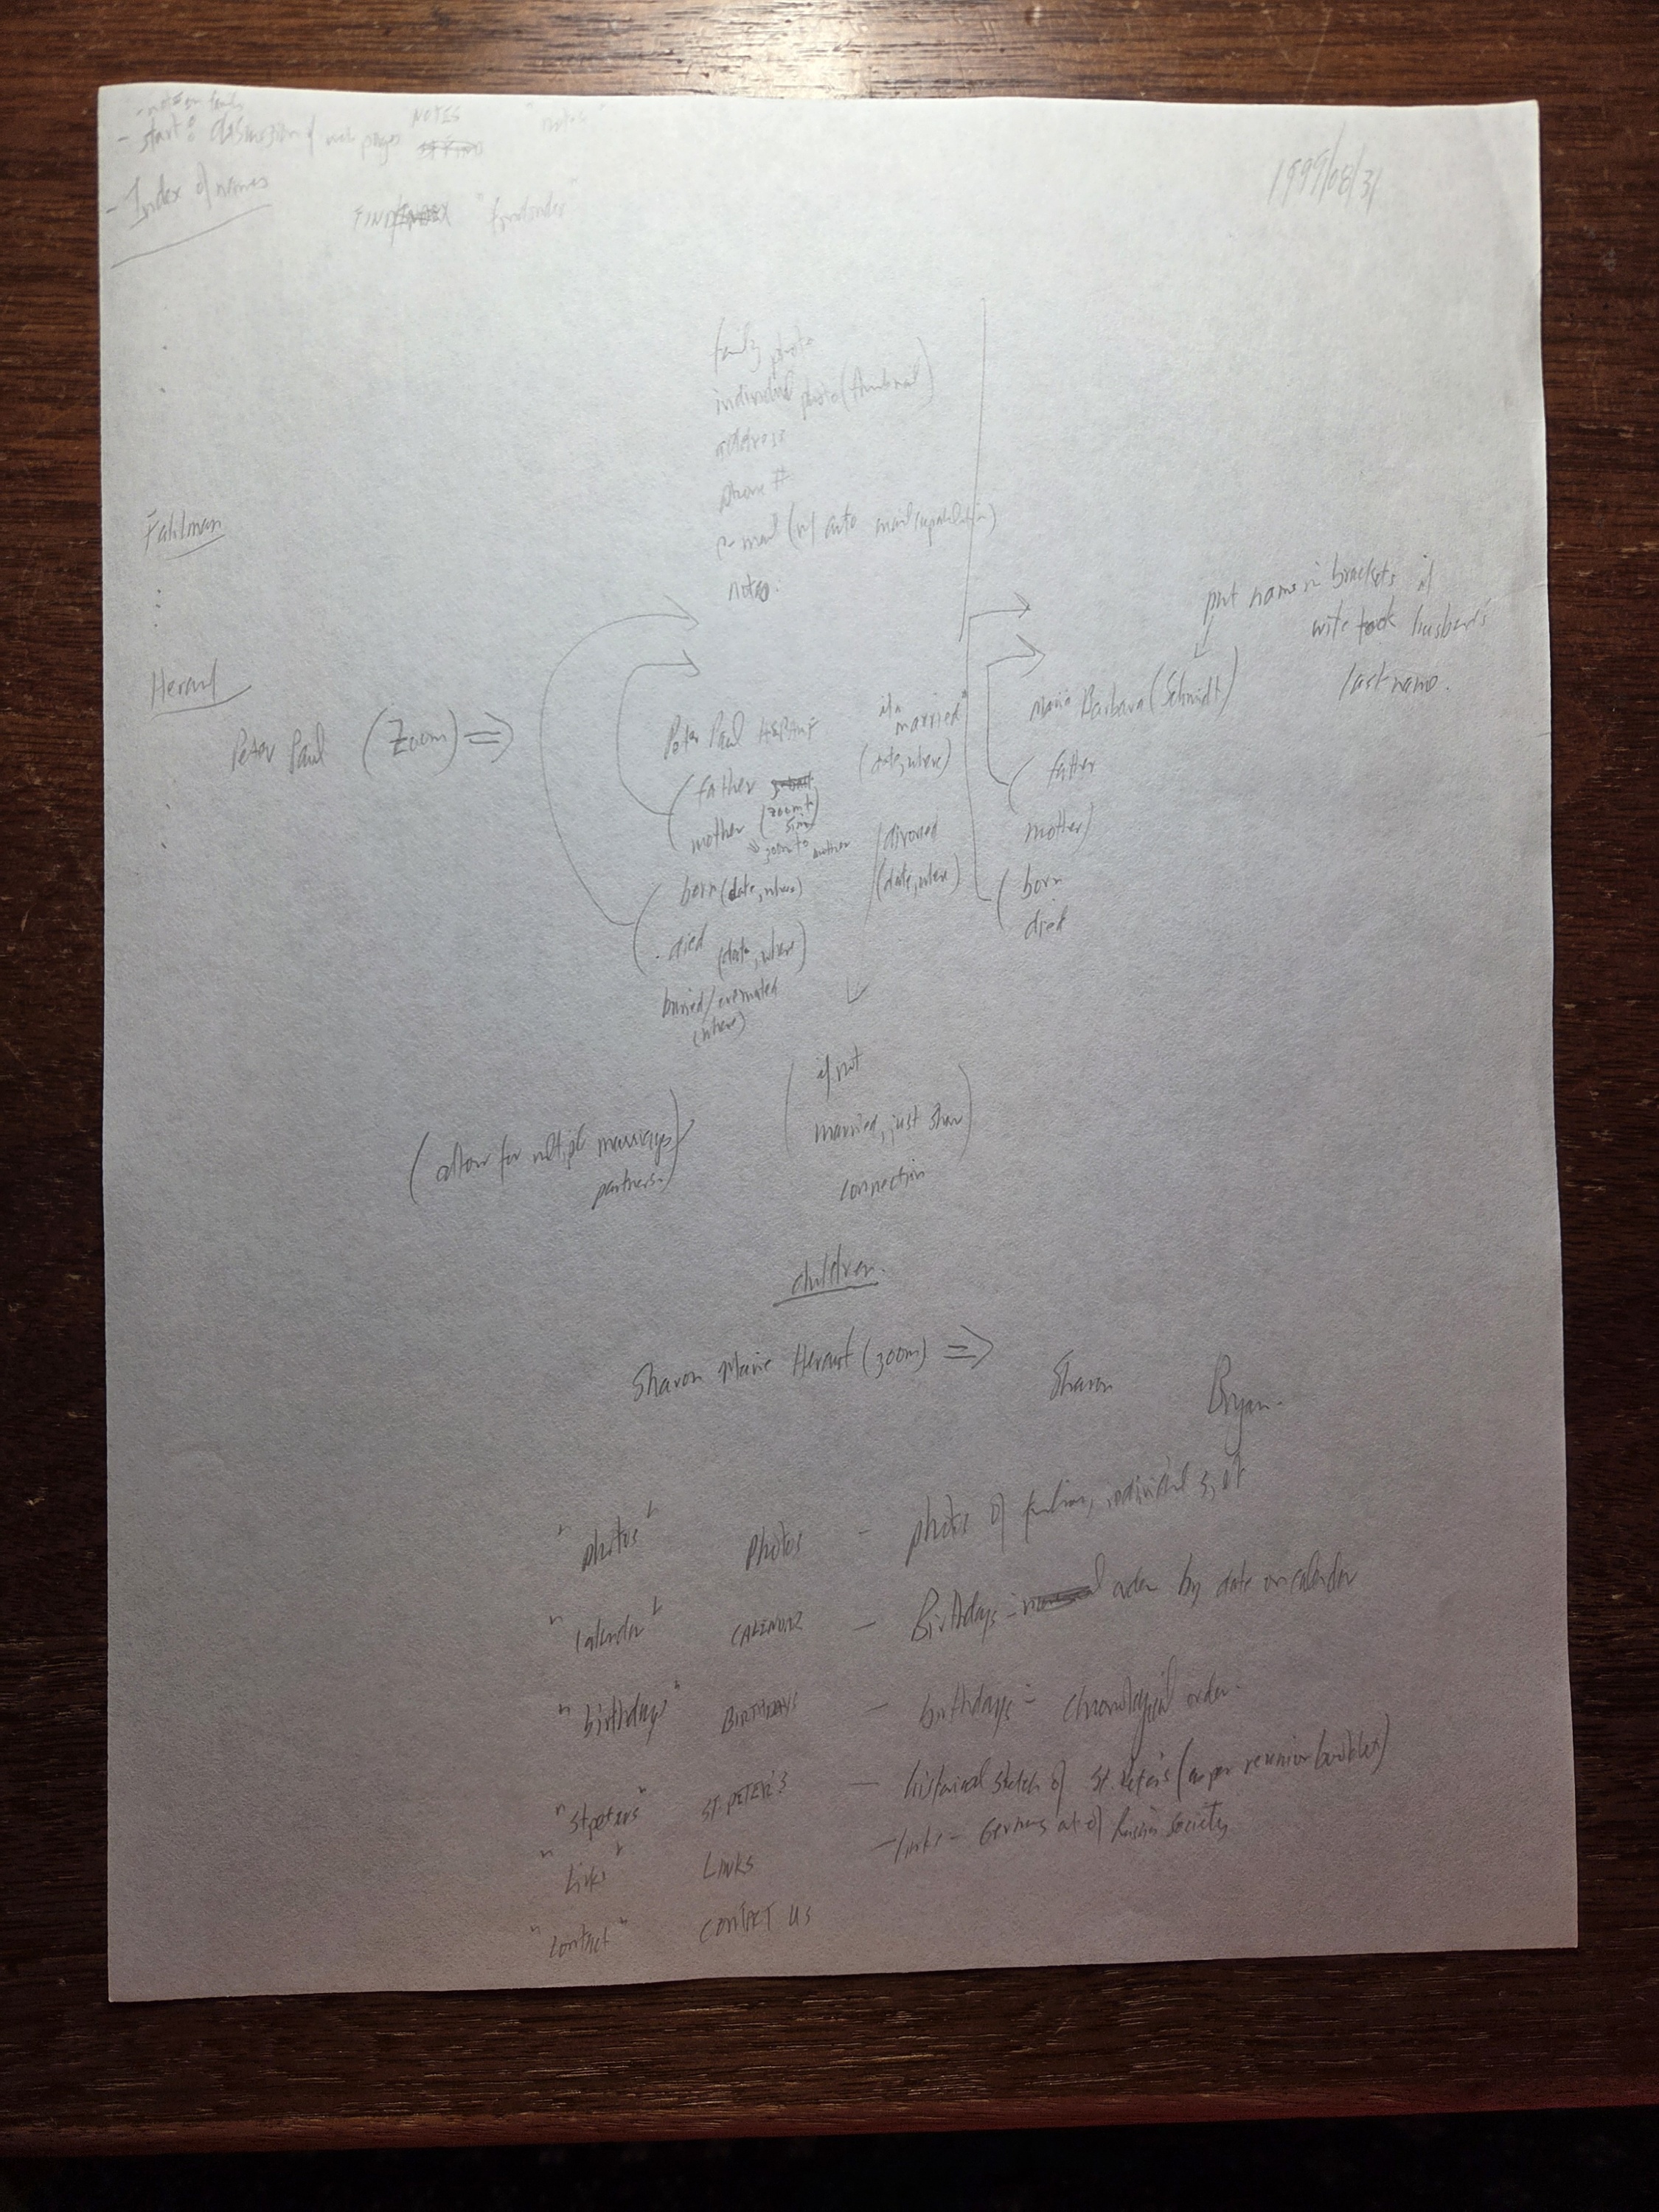 - notes on family
- start: description of web pages NOTES "notes"
- Index of names FIND "
1999/08/31
family photo
individual photo (thumbnail)
address
phone #
e-mail (w/ auto mail capabilities)
notes.
Fahlman
Herauf
Peter Paul (Zoom) =>
Peter Paul HERAUF
(father
(zoom to
mother
zoom to mother
born (date, where)
died (date, where)
buried/cremated
(where)
married
(date, where)
/divorced
(date, where)
put name in brackets if
wife took husband's
last name.
Maria Barbara (Schmidt)
(father
mother)
(born
died
(if not
married, just show)
connection
(allow for multiple marriage
partners.)
children.
Sharon Marie Herauf (zoom) => Sharon Bryan.
"photos" PHOTOS - photos of families, individuals, et
"calendar" CALENDAR - Birthdays - order by date on calendar
"birthdays" BIRTHDAYS - birthdays - chronological order.
"stpeters" ST. PETER'S - historical sketch of St. Peter's (as per reunion booklet)
"links" LINKS - links - Germans of Russia Society
"contact" CONTACT US